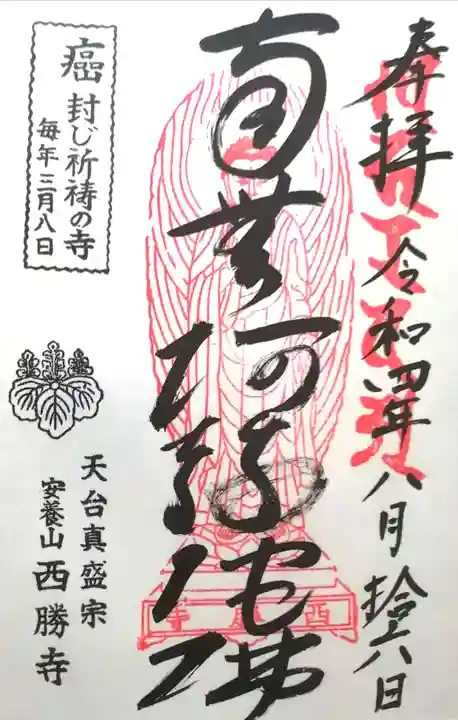 奉拝 令和四年八月拾六日
南無阿弥陀佛
癌封じ祈祷の寺
毎年三月八日
天台真盛宗
安養山 西勝寺
西勝寺